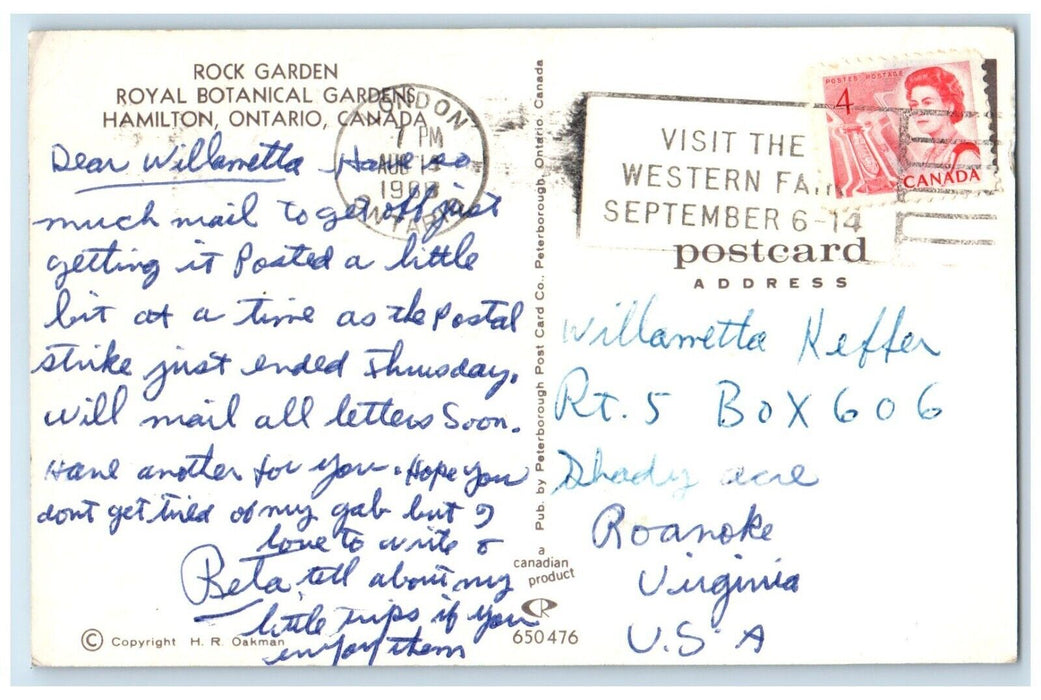 ROCK GARDEN
ROYAL BOTANICAL GARDENS
HAMILTON, ONTARIO, CANADA
LONDON
PM
AUG
ONTARIO
VISIT THE
WESTERN FA
SEPTEMBER 6-14
POSTES POSTAGE
4
CANADA
Dear Willametta Have so
much mail to get off just
getting it Posted a little
bit at a time as the Postal
strike just ended Thursday.
Will mail all letters Soon.
Have another for you. Hope you
dont get tired of my gab but I
love to write &
Beta. tell about my
little trips if you
enjoy them
© Copyright H. R. Oakman
Pub. by Peterborough Post Card Co., Peterborough, Ontario, Canada
a
canadian
product
650476
postcard
ADDRESS
Willametta Keffer
Rt. 5 BOX 606
Shady acre
Roanoke
Virginia
U.S.A